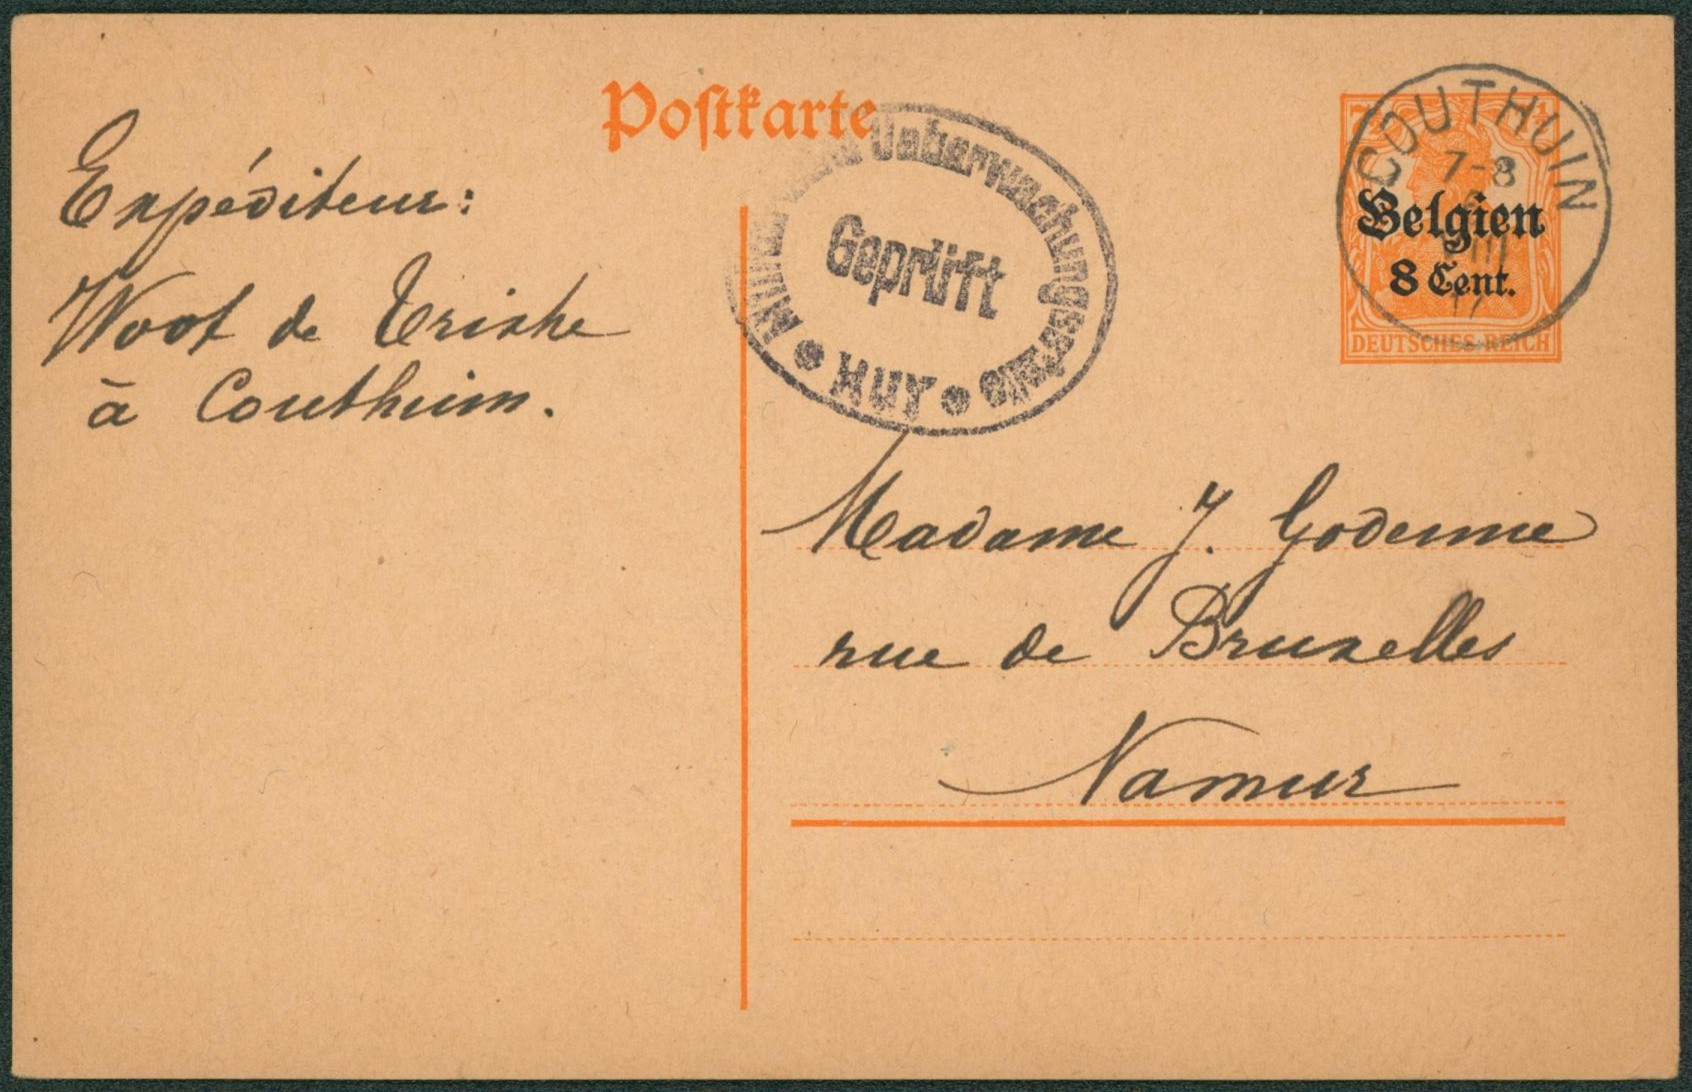 Postkarte
Expéditeur:
Woot de Trixhe
à Couthuin.
Ueberwachungsstelle
Geprüft
HUY
COUTHUIN
7-8
VIII
17
7½
Belgien
8 Cent.
DEUTSCHES REICH
Madame J. Godenne
rue de Bruxelles
Namur